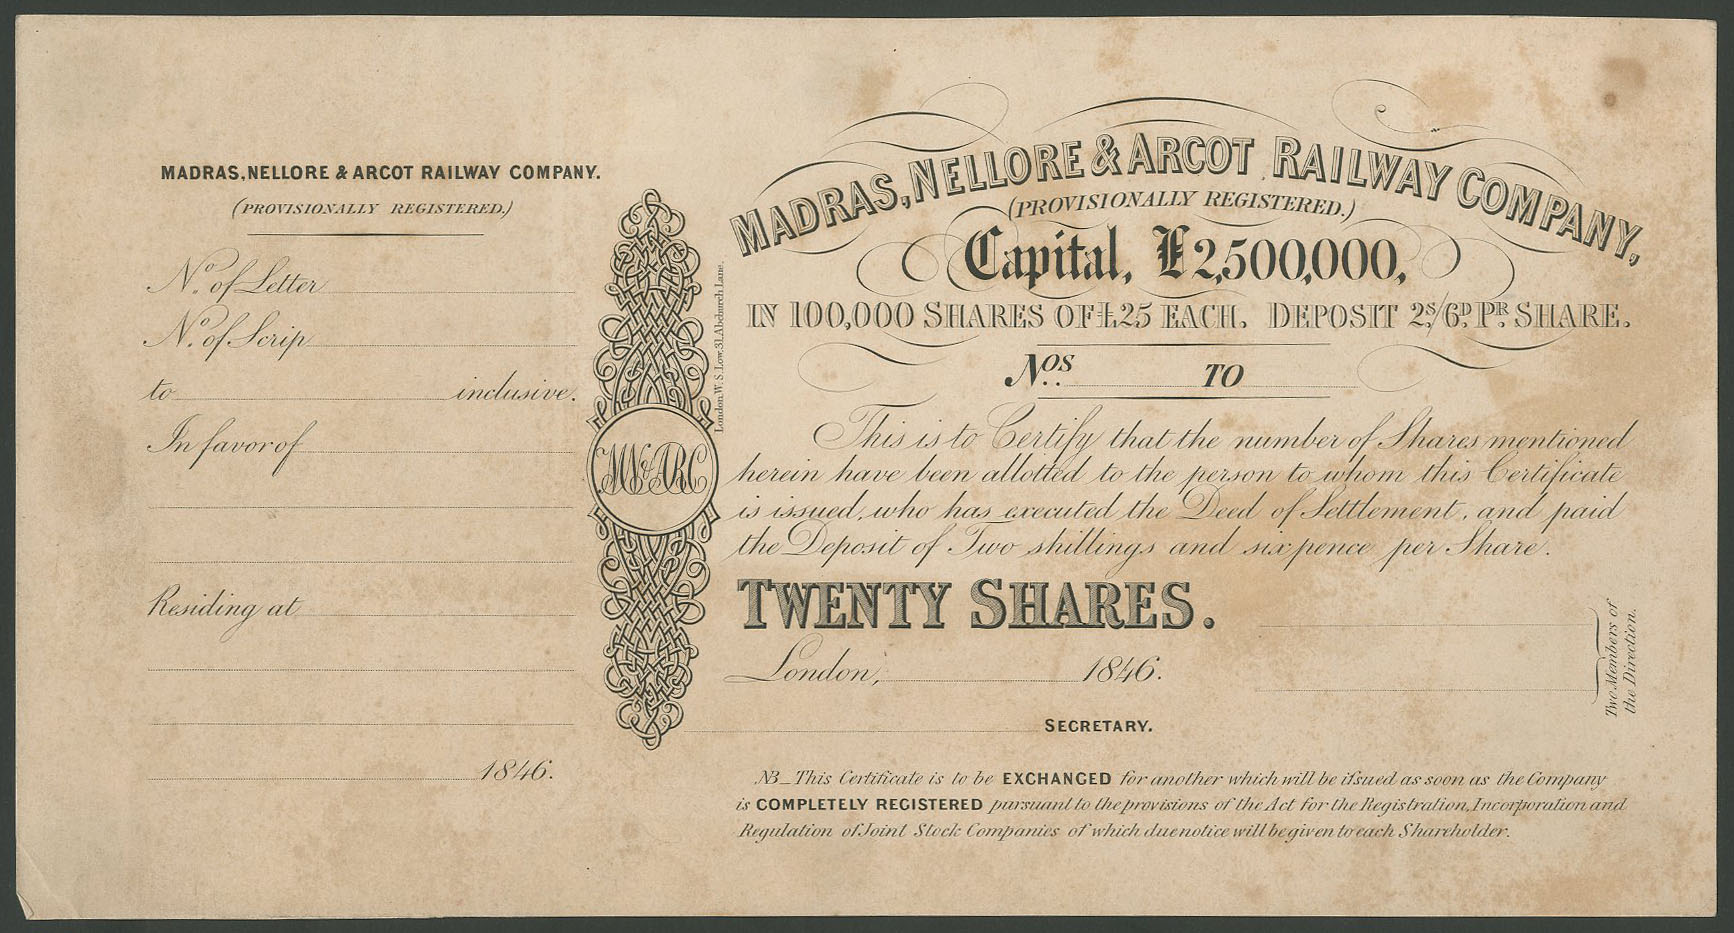 MADRAS, NELLORE & ARCOT RAILWAY COMPANY.
(PROVISIONALLY REGISTERED.)
No. of Letter
No. of Scrip
to inclusive.
In favor of
Residing at
1846.
MN&ARC
London, W. S. Low, 31, Abchurch Lane.
MADRAS, NELLORE & ARCOT RAILWAY COMPANY,
(PROVISIONALLY REGISTERED.)
Capital, £2,500,000,
IN 100,000 SHARES OF £25 EACH. DEPOSIT 2S/6D. PR SHARE.
Nos. TO
This is to Certify that the number of Shares mentioned
herein have been allotted to the person to whom this Certificate
is issued, who has executed the Deed of Settlement, and paid
the Deposit of Two shillings and sixpence per Share.
TWENTY SHARES.
London, 1846.
Two Members of
the Direction.
SECRETARY.
NB_This Certificate is to be EXCHANGED for another which will be issued as soon as the Company
is COMPLETELY REGISTERED pursuant to the provisions of the Act for the Registration, Incorporation and
Regulation of Joint Stock Companies of which due notice will be given to each Shareholder.